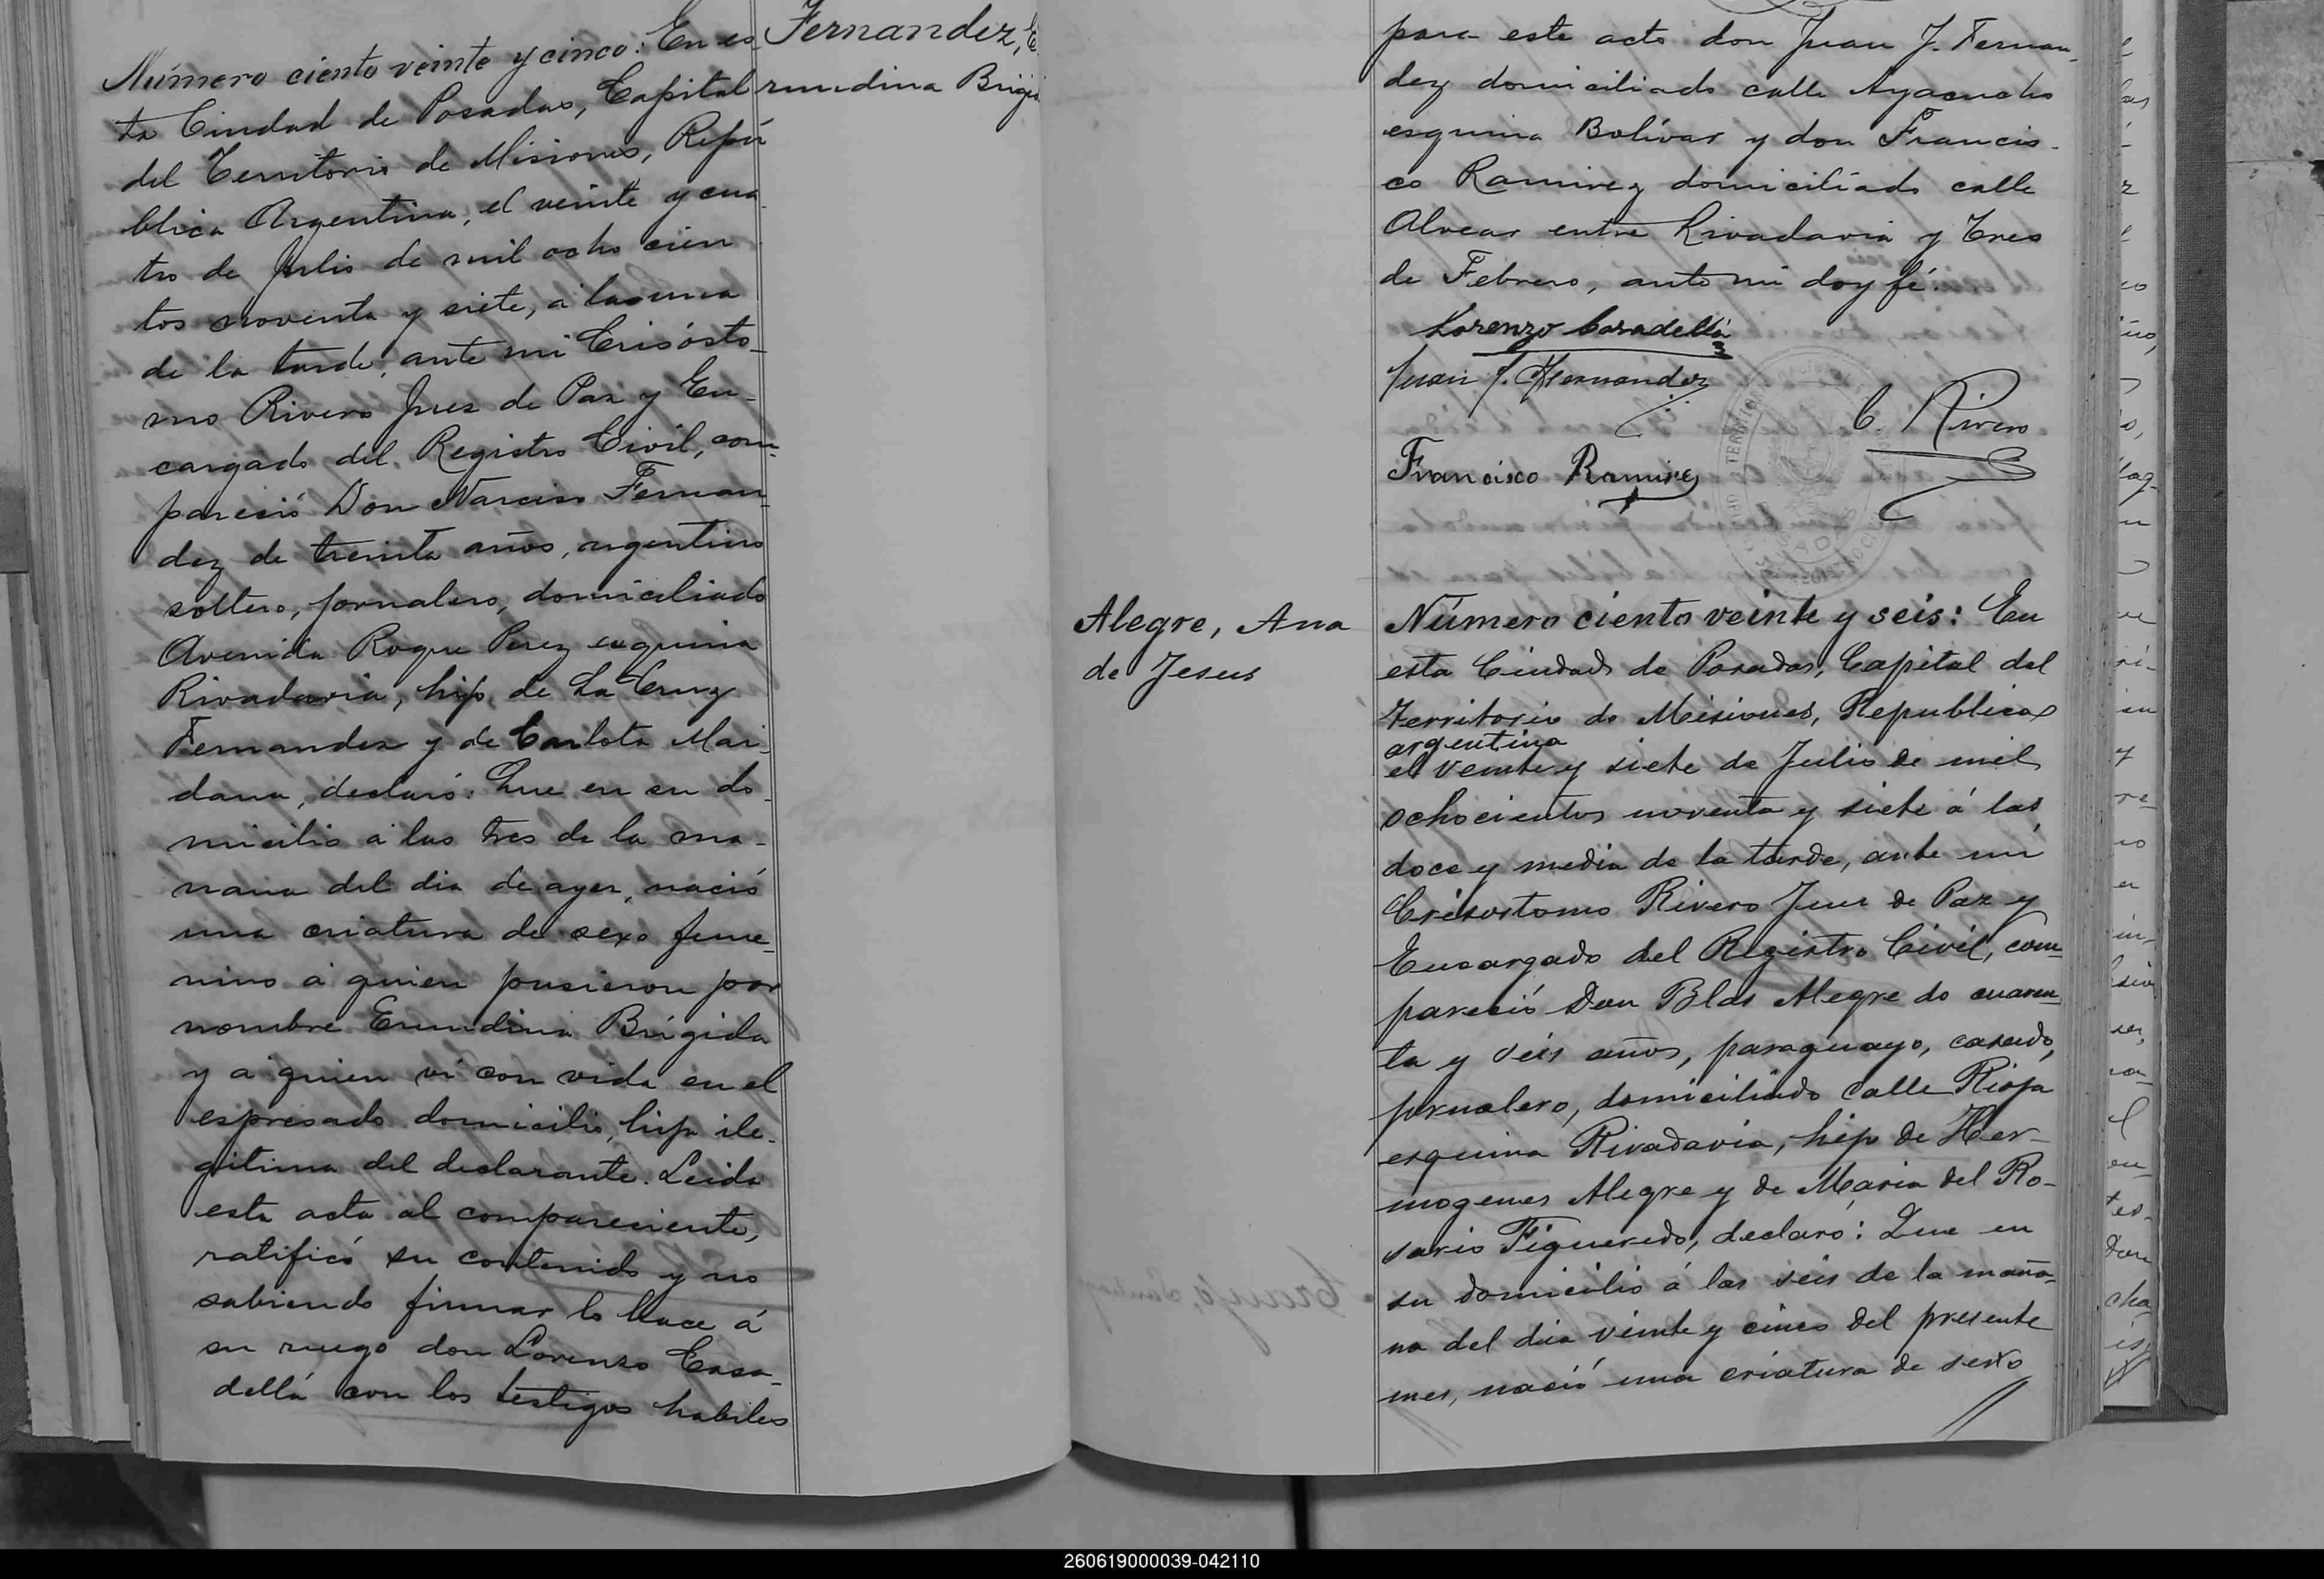 Número ciento veinte y cinco: En es
ta Ciudad de Posadas, Capital
del Territorio de Misiones, Repú
blica Argentina, el veinte y cua
tro de Julio de mil ocho cien
tos noventa y siete, a las una
de la tarde, ante mi Crisósto-
mo Rivero Juez de Paz y En-
cargado del Registro Civil, com-
pareció Don Narciso Fernan-
dez de treinta años, argentino
soltero, jornalero, domiciliado
Avenida Roque Perez esquina
Rivadavia, hijo de La Cruz
Fernandez y de Carlota Mai-
dana, declaró: Que en su do-
micilio a las tres de la ma-
nana del dia de ayer, nació
una criatura de sexo feme-
nino a quien pusieron por
nombre Erundina Brígida
y a quien vi con vida en el
espresado domicilio, hija ile-
gitima del declarante. Leida
esta acta al compareciente,
ratificó su contenido y no
sabiendo firmar lo hace á
su ruego don Lorenzo Casa-
dellá con los testigos habiles
Fernandez, E
rundina Brigid
para este acto don Juan J. Fernan-
dez domiciliado calle Ayacucho
esquina Bolívar y don Francis-
co Ramirez domiciliado calle
Alvear entre Rivadavia y Tres
de Febrero, ante mi doy fé.
Lorenzo Casadellá
Juan J. Fernandez
C. Rivero
Francisco Ramirez
Alegre, Ana
de Jesus
Número ciento veinte y seis: En
esta Ciudad de Posadas, Capital del
Territorio de Misiones, Republica
argentina
el veinte y siete de Julio de mil
ochocientos noventa y siete á las
doce y media de la tarde, ante mi
Crisostomo Rivero Juez de Paz y
Encargado del Registro Civil, com-
pareció Don Blas Alegre de cuaren-
ta y seis años, paraguayo, casado,
jornalero, domiciliado calle Rioja
esquina Rivadavia, hijo de Her-
mogenes Alegre y de Maria del Ro-
sario Figueredo, declaró: Que en
su domicilio á las seis de la maña-
na del dia veinte y cinco del presente
mes, nació una criatura de sexo
260619000039-042110